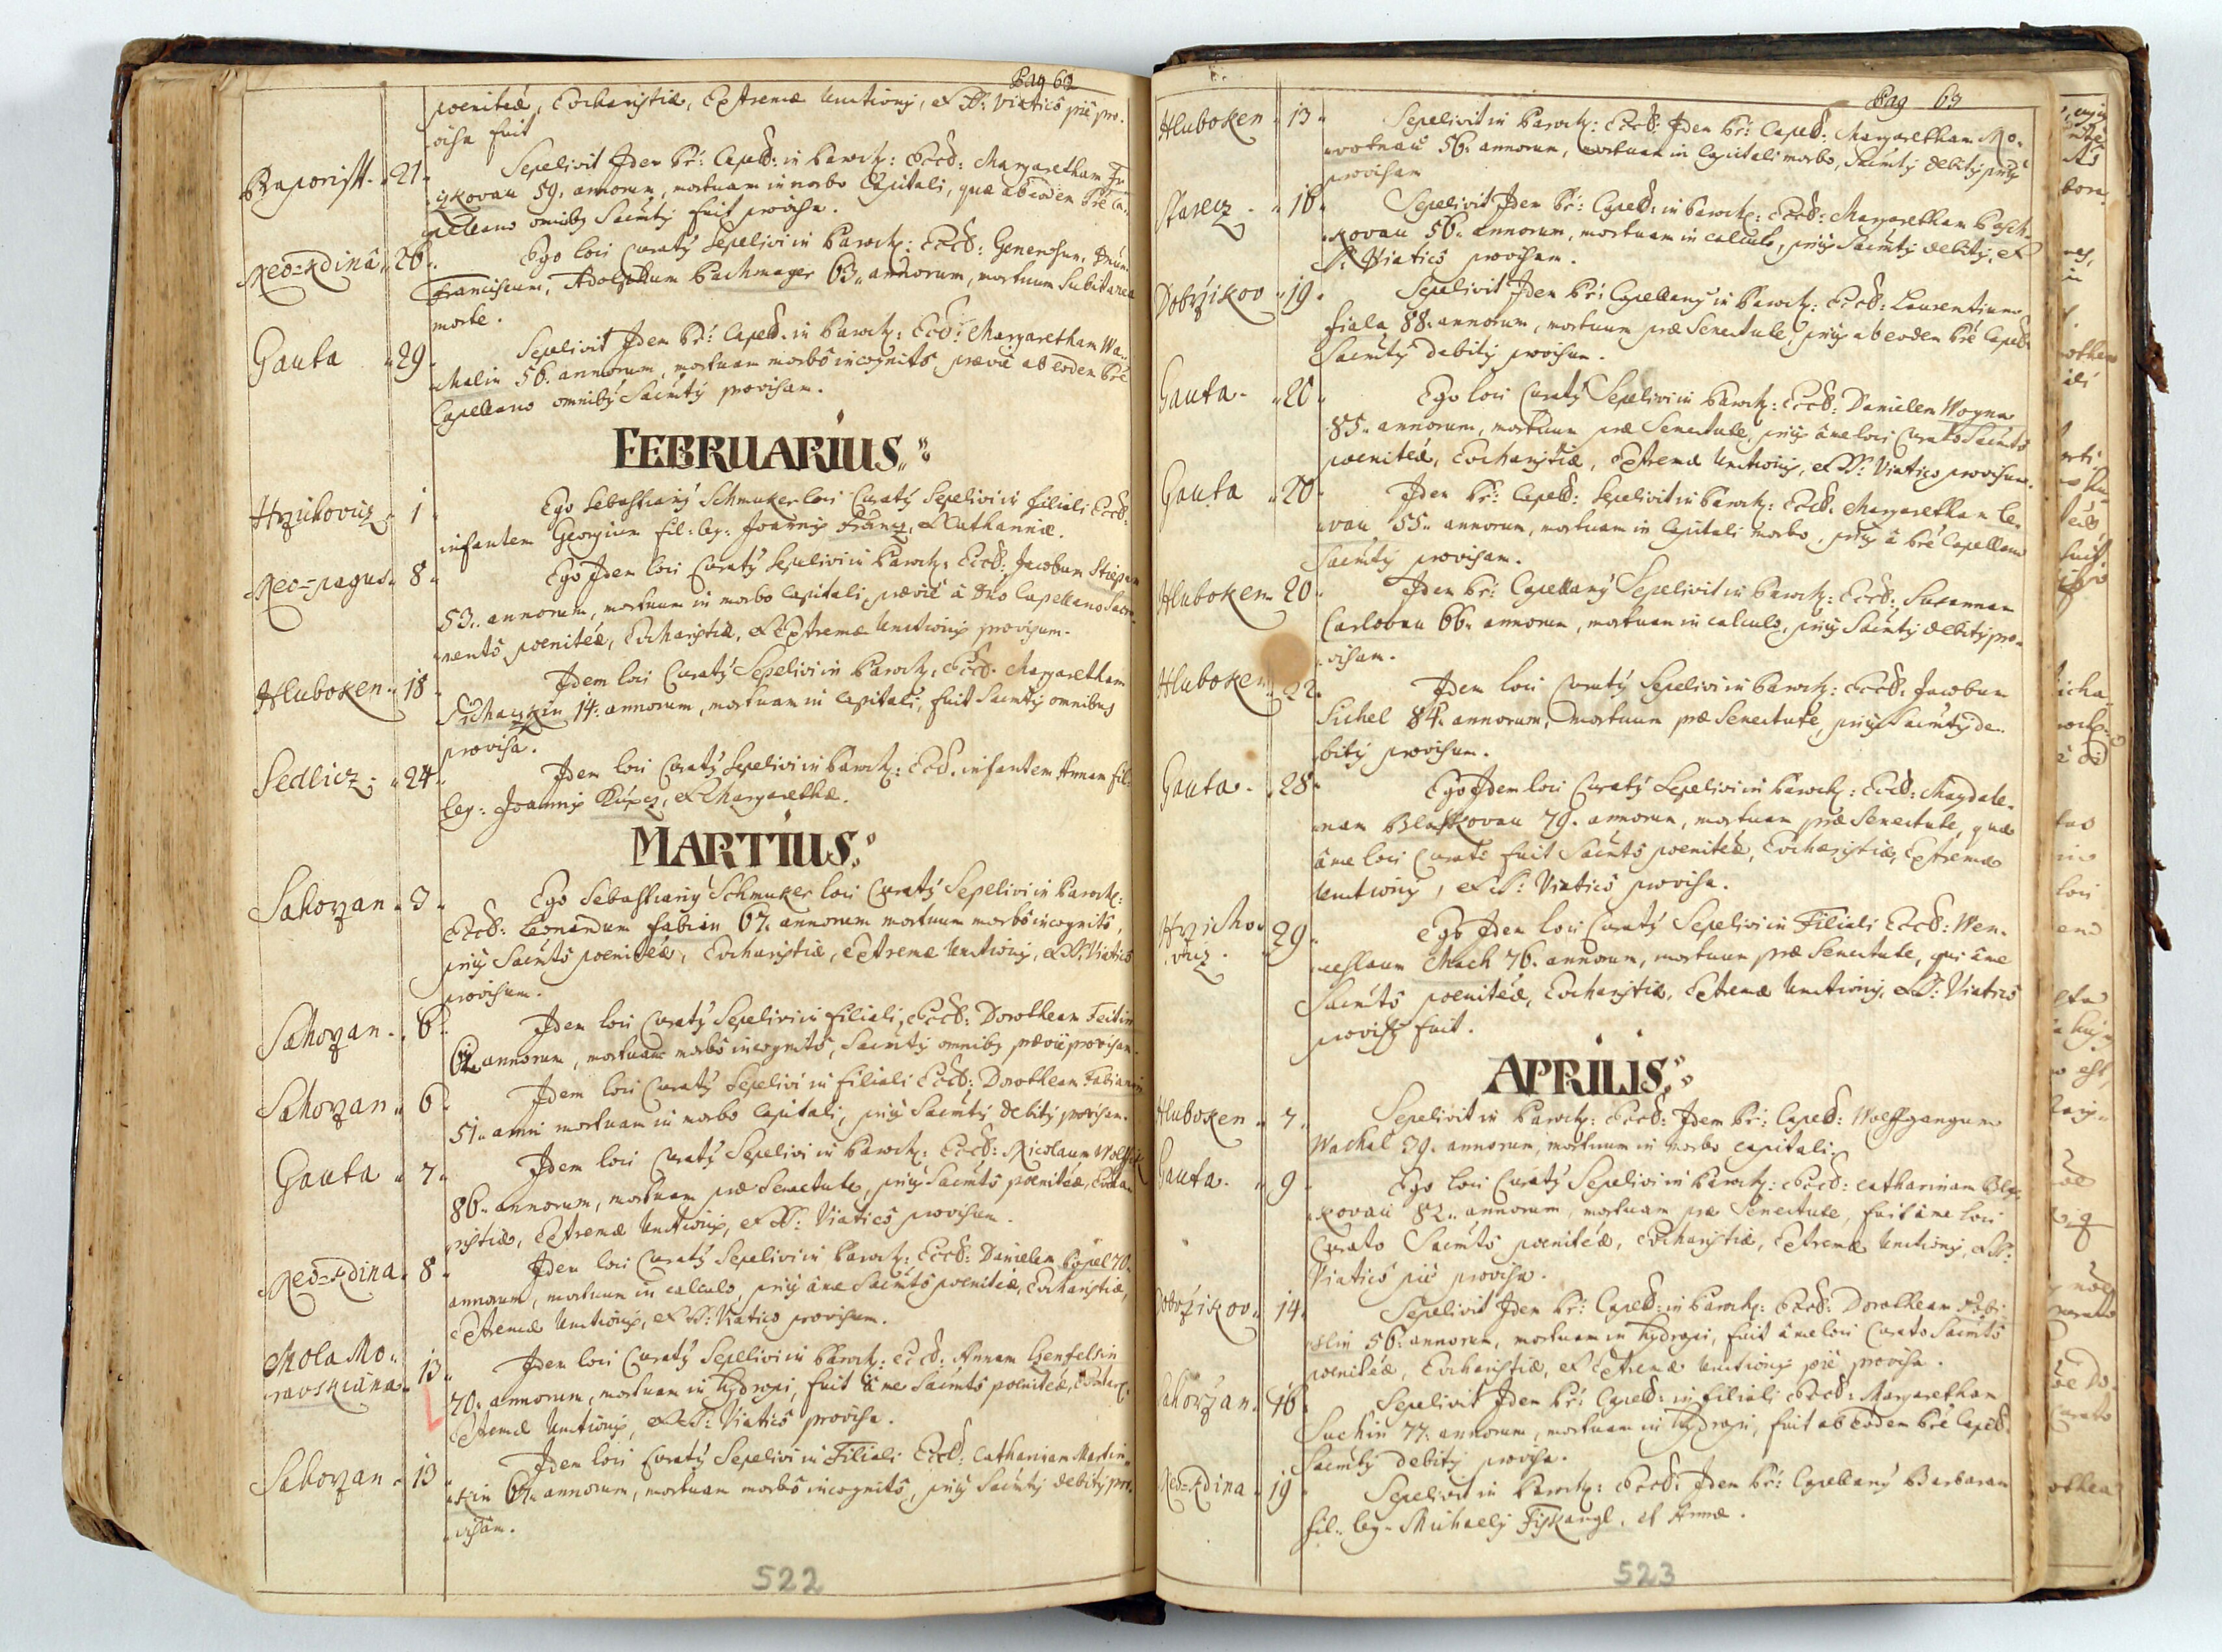 Pag 62
poeniteã, Eucharistiæ, Extremæ Unctionis, et SS: Viaticô piè pro„
visa fuit
Baporist. „ 21 „ Sepelivit Idem Rѐ: Capell: in Paroch: Eccl: Margaretham
„kovan 59. annorum, mortuam in morbo Capitali, quæ ab eodem Rѐ Ca„
pellano omnibg Sacmtis fuit provisa.
Neo=Kdina „ 26 „ Ego loci Curatg sepelivi in Paroch: Eccl: Generosum Dnum
Franciscum, Adolphum Pachmayer 63„ annorum, mortuum Subitanea
morte.
Gauta „ 29 „ Sepelivit Idem Rѐ: Capell: in Paroch: Eccl: Margaretham Wa„
„Malin 56. annorum, mortuam morbô incognitô, præviè ab eodem Rѐ
Capellano omnibg Sacmtis provisam.
FEBRUARIUS„
Hrzichovicz „ 1 „ Ego Sebastiang Schmuker loci Curatg Sepelivi in filiali Eccl:
infantem Georgium fil: leg: Joannis Krancz, et Catharinæ.
Neo=pagus „ 8 „ Ego Idem loci Curatg Sepelivi in Paroch: Eccl: Jacobum
53„ annorum, mortuum in morbo Capitali, præviè à Dno Capellano Sacra„
„mentô poeniteã, Eucharistiæ, et Extremæ Unctionis provisum.
Hluboken „ 18 „ Idem loci Curatg Sepelivi in Paroch: Eccl: Margaretham
14. annorum, mortuam in Capitali, fuit Sacmtis omnibus
provisa.
Sedlicz „ 24 „ Idem loci Curatg Sepelivi in Paroch: Eccl: infantem Annam fil:
leg: Joannis Kupcz, et Margarethæ.
MARTIUS„
Sahorzan „ 3 „ Ego Sebastiang Schmuker loci Curatg Sepelivi in Paroch:
Eccl: Leonardum Fabian 67. annorum mortuum morbô incognitô,
prig Sacmtô poeniteã, Eucharistiæ, Extremæ Unctionis, et SS: Viaticô
provisum.
Sahorzan „ 6 „ Idem loci Curatg Sepelivi in filiali Eccl: Dorotheam Teitin
annorum, mortuam morbô incognitô, Sacmtis omnibg præviè provisam.
Sahorzan „ 6 „ Idem loci Curatg Sepelivi in filiali Eccl: Dorotheam
51„ anni mortuam in morbo Capitali, prig Sacmtis debitis provisam.
Gauta „ 7 „ Idem loci Curatg Sepelivi in Paroch: Eccl: Nicolaum
86„ annorum, mortuum præ Senectute, prig Sacmtô poeniteã, Eucha„
ristiæ, Extremæ Unctionis, et SS: Viaticô provisum.
Neo=Kdina „ 8 „ Idem loci Curatg Sepelivi in Paroch: Eccl: Danielem Popel 70„
annorum, mortuum in calculo, prig à me Sacmtô poeniteã, Eucharistiæ,
Extremæ Unctionis, et SS: Viatico provisum.
Mola Mo„
ravskiana „ 13 „ Idem loci Curatg Sepelivi in Paroch: Eccl: Annam Genfelsin
70„ annorum, mortuam in hydropi, fuit à me Sacmtô poeniteã, Euchar:
Extremæ Unctionis, et SS: Viaticô provisa.
Sahorzan „ 13 „ Idem loci Curatg Sepelivi in Filiali Eccl: Catharinam Martin„
„kin annorum, mortuam morbô incognitô, prig Sacmtis debitis pro„
„visam.
522
Pag 63
Hluboken „ 13 „ Sepelivit in Paroch: Eccl: Idem Rѐ: Capell: Margaretham Mo„
56. annorum, mortuam in Capitali morbo, Sacmtis debitis prig
provisam
Starecz „ 16 „ Sepelivit Idem Rѐ: Capell: in Paroch: Eccl: Margaretham Pasch„
„kovan 56. annorum, mortuam in calculo, prig Sacmtis debitis, et
SS: Viaticô provisam.
Dobrzikov „ 19 „ Sepelivit Idem Rѐ: Capellang in Paroch: Eccl: Laurentium
Fiala 88. annorum, mortuum præ Senectute, prig ab eodem Rѐ Capell:
Sacmtis debitis provisum.
Gauta „ 20 „ Ego loci Curatg Sepelivi in Paroch: Eccl: Danielem Wogna
85„ annorum, mortuum præ Senectute, prig à me loci Curato Sacmtô
poeniteã, Eucharistiæ, Extremæ Unctionis, et SS: Viatico provisum.
Gauta „ 20 „ Idem Rѐ: Capell: Sepelivit in Paroch: Eccl: Margaretham Ce„
„van 55„ annorum, mortuam in Capitali morbo, prig à Rѐ Capellano
Sacmtis provisam.
Hluboken „ 20 „ Idem Rѐ: Capellang Sepelivit in Paroch: Eccl: Susannam
Carlovan 66„ annorum, mortuam in calculo, prig Sacmtis debitis pro„
„visam.
Hluboken „ 22 „ Idem loci Curatg Sepelivi in Paroch: Eccl: Jacobum
Sichel 84. annorum, mortuum præ Senectute, prig Sacmtis de„
bitis provisum.
Gauta „ 28 „ Ego Idem loci Curatg Sepelivi in Paroch: Eccl: Magdale„
„nam Blaskovan 79. annorum, mortuam præ Senectute, quæ
à me loci Curatô fuit Sacmtô poeniteã, Eucharistiæ, Extremæ
Unctionis, et SS: Viaticô provisa.
Hrzicho„
vicz „ 29 „ Ego Idem loci Curatg Sepelivi in Filiali Eccl: Wen„
„ceslaum Mach 76. annorum, mortuum præ Senectute, qui à me
Sacmtô poeniteã, Eucharistiæ, Extremæ Unctionis, et SS: Viaticô
provisg fuit.
APRILIS„
Hluboken „ 7 „ Sepelivit in Paroch: Eccl: Idem Rѐ: Capell: Wolffgangum
Wachal 39. annorum, mortuum in morbo capitali.
Gauta „ 9 „ Ego loci Curatg Sepelivi in Paroch: Eccl: Catharinam
„kovan 82„ annorum, mortuam præ Senectute, fuit à me loci
Curato Sacmtô poeniteã, Eucharistiæ, Extremæ Unctionis, et SS:
Viaticô piè provisa.
Dobrzikov „ 14 „ Sepelivit Idem Rѐ: Capell: in Paroch: Eccl: Dorotheam
56. annorum, mortuam in hydropi, fuit à me loci Curato Sacmtô
poeniteã, Eucharistiæ, et Extremæ Unctionis piè provisa.
Sahorzan „ 16 „ Sepelivit Idem Rѐ: Capell: in filiali Eccl: Margaretham
Suchin 77. annorum, mortuam in hydropi, fuit ab eodem Rѐ Capell:
Sacmtis debitis provisa.
Neo=Kdina „ 19 „ Sepelivit in Paroch: Eccl: Idem Rѐ: Capellang Barbaram
fil: leg: Michaelis Fiskangl, et Annæ.
523